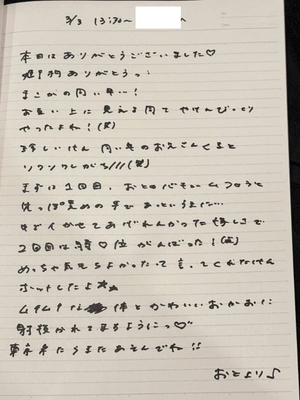 3/3 13:30〜
へ
本日はありがとうございました♡
ありがとうっ
まさかの同い年!
お互い上に見える同てやけんびっくり
やったよね!(笑)
珍しいけん 同い年のお兄さんくると
ソワソワしがち///(笑)
まずは1回目、
先っぽ責めの手であっという間に…
口でイかせてあげれんかった悔しさで
2回目は騎♡位がんばった!(笑)
めっちゃ気もちよかったって言ってくれたけん
ホッとしたよ
ムチムチな 体とかわいいおかおに
射抜かれてまるように♡
東京来たらまたあそんでね!!
おとより♪